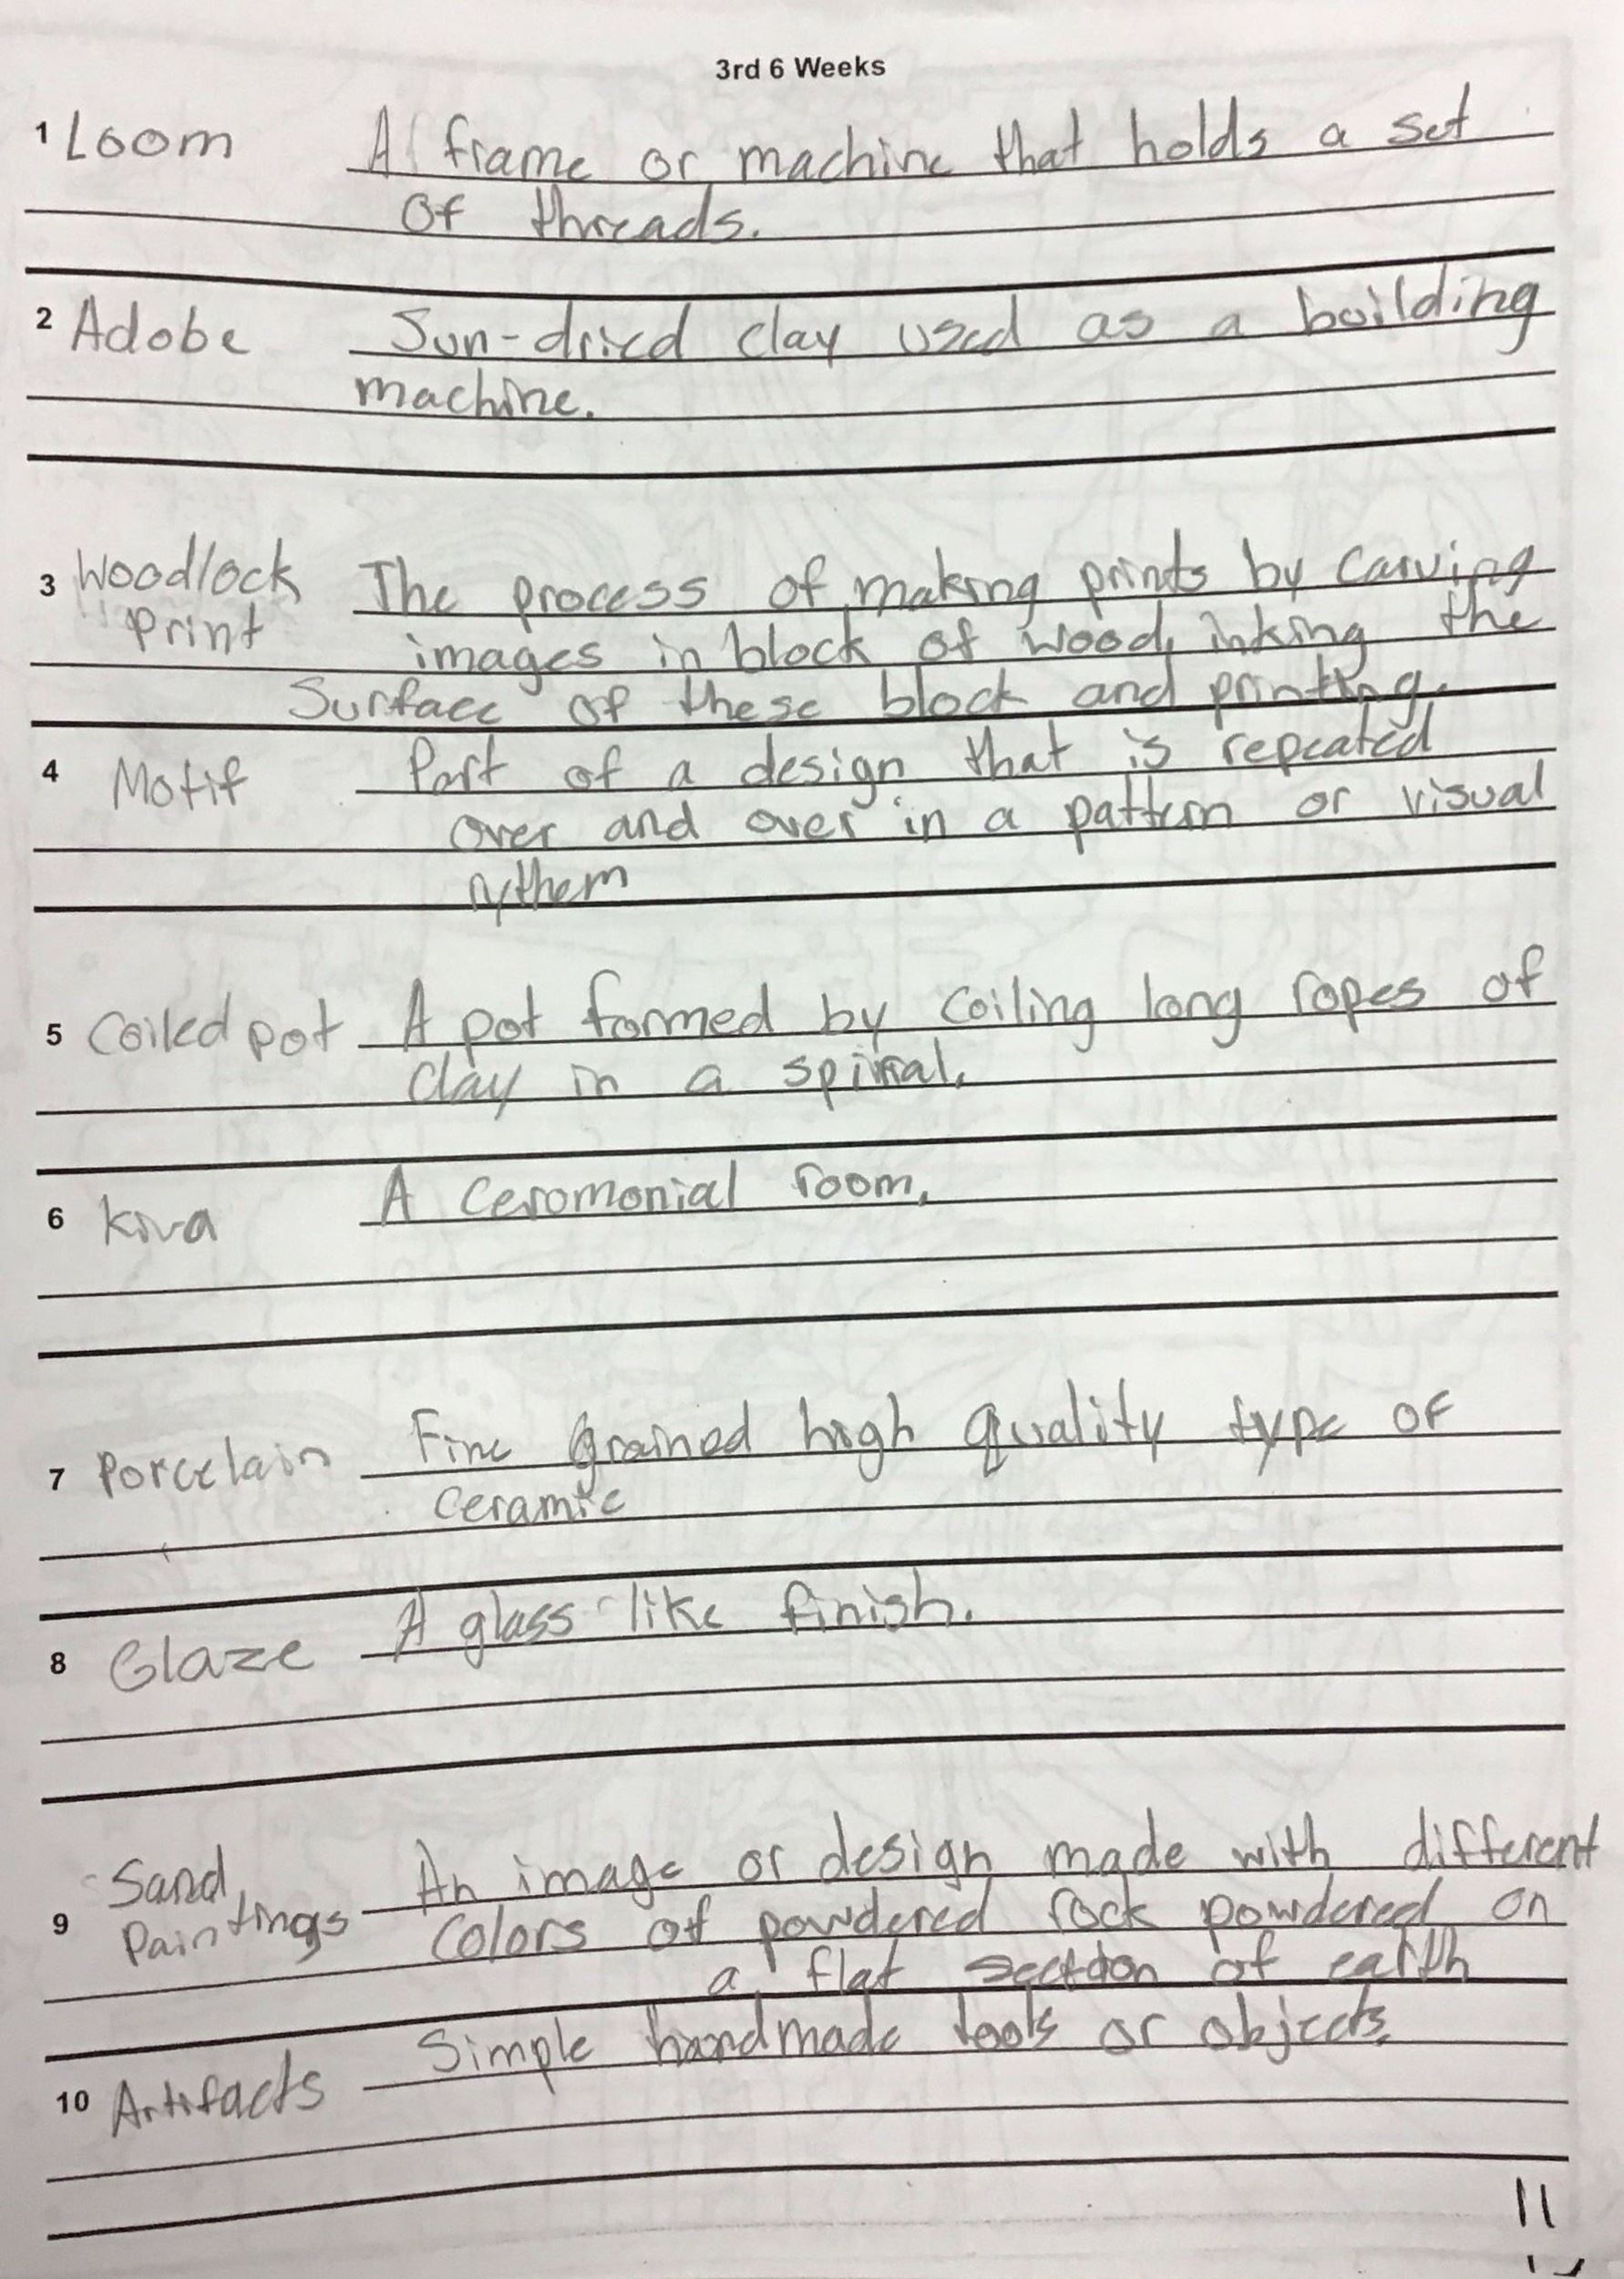 3rd 6 Weeks
1 Loom A frame or machine that holds a set
of threads.
2 Adobe Sun-dried clay used as a building
machine.
3 Woodlock The process of making prints by carving
Print images in block of wood, inking the
Surface of these block and printing.
4 Motif Part of a design that is repeated
over and over in a pattern or visual
rythem
5 Coiled pot A pot formed by coiling long ropes of
clay in a spiral.
6 kiva A Ceromonial room.
7 Porcelain Fine Grained high quality type of
ceramic
8 Glaze A glass-like finish.
Sand An image or design made with different
9 Paintings colors of powdered rock powdered on
a flat section of earth
10 Artifacts Simple handmade tools or objects.
11